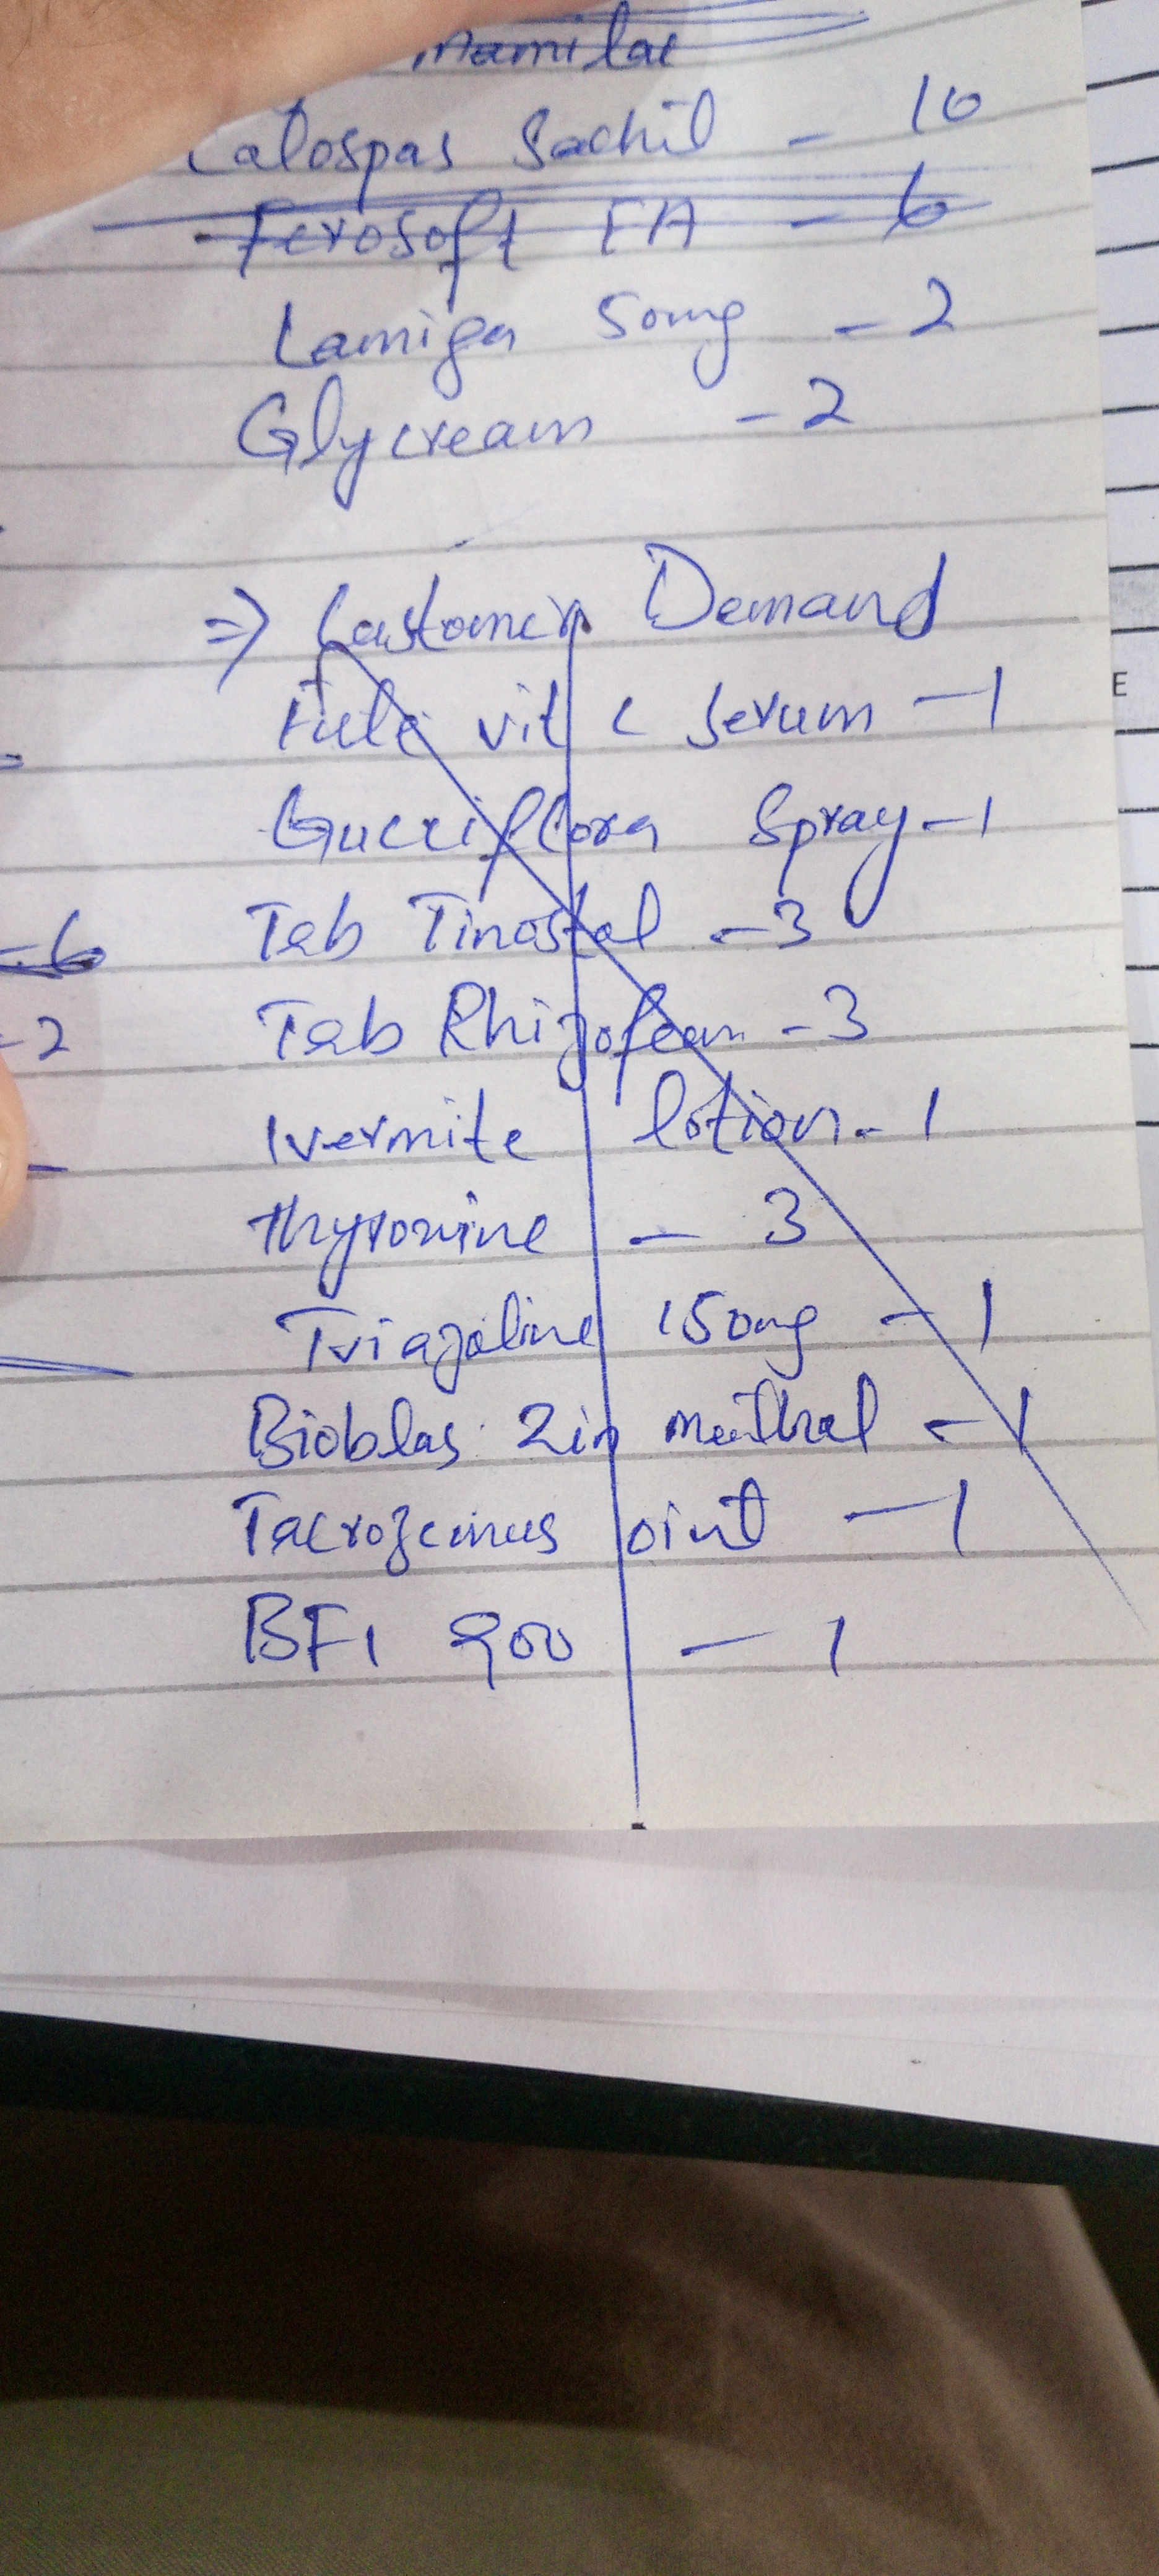 Calospas Sachil - 10
Ferosoft FA - 6
Lamiga 50mg - 2
Glycream - 2
=> Customer Demand
vit C Serum - 1
Gucci flora Spray - 1
Tab Tinostal - 3
Tab - 3
Ivermite lotion - 1
Thyronine - 3
150mg - 1
Bioblas 2in - 1
oint - 1
BF1 900 - 1
- 6
- 2